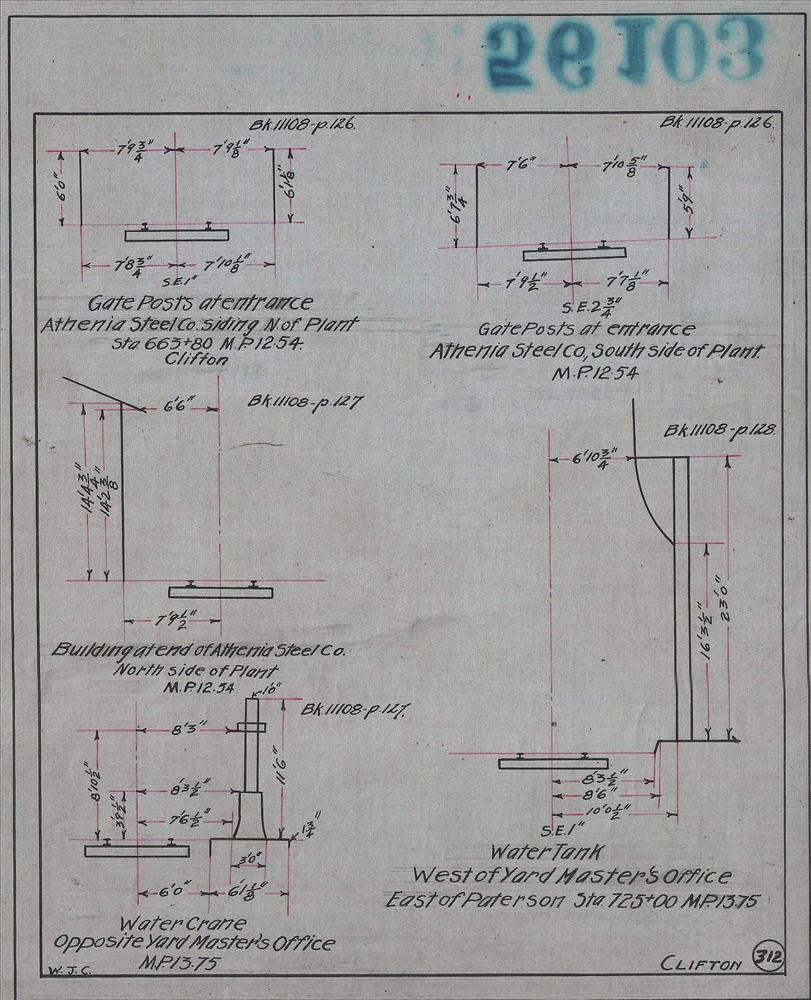 56103
Bk.11108-p.126.
7'9 3/4"
7'9 1/8"
6'0"
6'1 1/8"
7'8 3/4"
7'10 1/8"
S.E.1"
Gate Posts at entrance
Athenia Steel Co. siding N. of Plant
Sta 663+80 M.P.12.54.
Clifton
Bk.11108-p.126.
7'6"
7'10 5/8"
6'7 3/4"
5'9"
7'9 1/2"
7'7 1/8"
S.E.2 3/4"
Gate Posts at entrance
Athenia Steel Co, South side of Plant.
M.P.12.54
Bk.11108-p.127
6'6"
14'4 3/4"
14'2 3/8"
7'9 1/2"
Building at end of Athenia Steel Co.
North side of Plant
M.P.12.54
Bk.11108-p.128.
6'10 3/4"
16'3 1/2"
23'0"
8'3 1/2"
8'6"
10'0 1/2"
S.E.1"
Water Tank
West of Yard Master's Office
East of Paterson Sta 725+00 M.P.13.75
Bk.11108-p.127.
1'0"
8'3"
8'10 1/2"
11'6"
8'3 1/2"
3'9 1/2"
7'6 1/2"
1 3/4"
3'0"
6'0"
6'1 1/8"
Water Crane
Opposite Yard Master's Office
M.P.13.75
W.J.C.
CLIFTON 312